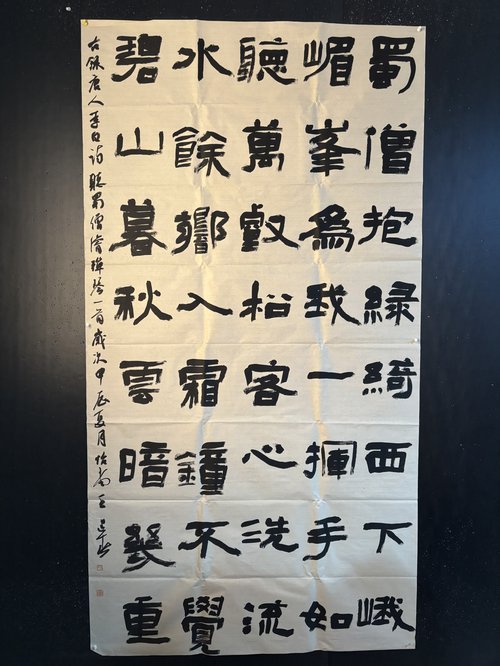 蜀僧抱綠綺西下峨
嵋峯爲我一揮手如
聽萬壑松客心洗流
水餘響入霜鐘不覺
碧山暮秋雲暗幾重
右錄唐人李白詩聽蜀僧濬彈琴一首歲次甲辰夏月王